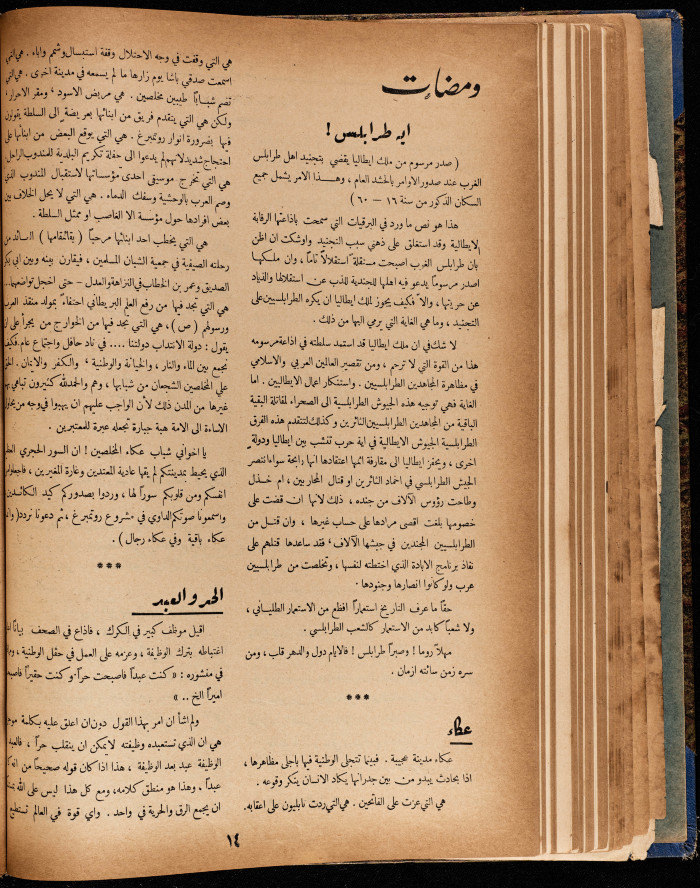 ومضات
ايه طرابلس !
( صدر مرسوم من ملك ايطاليا يقضي بتجنيد اهل طرابلس
الغرب عند صدور الاوامر بالحشد العام ، وهذا الامر يشمل جميع
السكان الذكور من سنة ١٦ – ٦٠ )
هذا هو نص ما ورد في البرقيات التي سمحت باذاعتها الرقابة
الايطالية وقد استغلق على ذهني سبب التجنيد واوشكت ان اظن
بان طرابلس الغرب اصبحت مستقلة استقلالاً تاماً ، وان ملكها
اصدر مرسوماً يدعو فيه اهلها للجندية للذب عن استقلالها والذياد
عن حريتها ، والا فكيف يجوز لملك ايطاليا ان يكره الطرابلسيين على
التجنيد ، وما هي الغاية التي يرمي اليها من ذلك .
لا شك في ان ملك ايطاليا قد استمد سلطته في اذاعة مرسومه
هذا من القوة التي لا ترحم ، ومن تقصير العالمين العربي والاسلامي
في مظاهرة المجاهدين الطرابلسيين . واستنكار اعمال الايطاليين . اما
الغاية فهي توجيه هذه الجيوش الطرابلسية الى الصحراء لمقاتلة البقية
الباقية من المجاهدين الطرابلسيين الثائرين وكذلك لتتقدم هذه الفرق
الطرابلسية الجيوش الايطالية في اية حرب تنشب بين ايطاليا ودولة
اخرى ، ويحفز ايطاليا الى مقارفة اثمها اعتقادها انها رابحة سواء انتصر
الجيش الطرابلسي في اخماد الثائرين او قتال المحاربين ، ام خذل
وطاحت رؤوس الآلاف من جنده ، ذلك لانها ان قضت على
خصومها بلغت اقصى مرادها على حساب غيرها ، وان قتل من
الطرابلسيين المجندين في جيشها الآلاف فقد ساعدها قتلهم على
نفاذ برنامج الابادة الذي اختطته لنفسها ، وتخلصت من طرابلسيين
عرب ولو كانوا انصارها وجنودها .
حقاً ما عرف التاريخ استعماراً افظع من الاستعمار الطلياني ،
ولا شعباً كابد من الاستعمار كالشعب الطرابلسي .
مهلاً روما ! وصبراً طرابلس ! فالايام دول والدهر قلب ، ومن
سره زمن سائته ازمان .
***
عكاء
عكاء مدينة عجيبة . فبينما تتجلى الوطنية فيها باجلى مظاهرها ،
اذا بحادث يبدو من بين جدرانها يكاد الانسان ينكر وقوعه .
هي التي عزت على الفاتحين . هي التي ردت نابليون على اعقابه .
هي التي وقفت في وجه الاحتلال وقفة استبسال وشمم واباء . هي التي
اسمعت صدقي باشا يوم زارها ما لم يسمعه في مدينة اخرى . هي التي
تضم شباباً طيبين مخلصين . هي مربض الاسود ، ومقر الاحرار ،
ولكن هي التي يتقدم فريق من ابنائها بعريضة الى السلطة يقولون
فيها بضرورة انوار روتمبرغ . هي التي يوقع البعض من ابنائها على
احتجاج شديد لانهم لم يدعوا الى حفلة تكريم البلدية للمندوب الراحل
هي التي تخرج موسيقى احدى مؤسساتها لاستقبال المندوب الذي
وصم العرب بالوحشية وسفك الدماء . هي التي لا يحل الخلاف بين
بعض افرادها حول مؤسسة الا الغاصب او ممثل السلطة .
هي التي يخطب احد ابنائها مرحباً ( بقائمقامها ) العائد من
رحلته الصيفية في جمعية الشبان المسلمين ، فيقارن بينه وبين ابي بكر
الصديق وعمر بن الخطاب في النزاهة والعدل – حتى اخجل تواضعها...
هي التي تجد فيها من رفع العلم البريطاني احتفاء بمولد منقذ العرب
ورسولهم ( ص ) ، هي التي تجد فيها من الخوارج من يجرأ على ان
يقول : دولة الانتداب دولتنا .... في ناد حافل واجتماع عام . فكيف
نجمع بين الماء والنار ، والخيانة والوطنية ، والكفر والايمان .
على المخلصين الشجعان من شبابها ، وهم والحمد لله كثيرون تباهي بهم
غيرها من المدن ذلك لأن الواجب عليهم ان يهبوا في وجه من
الاساءة الى الامة هبة جبارة تجعله عبرة للمعتبرين .
يا اخواني شباب عكاء المخلصين ! ان السور الحجري
الذي يحيط بمدينتكم لم يقها عادية المعتدين وغارة المغيرين ، فاجعلوا من
انفسكم ومن قلوبكم سوراً لها ، وردوا بصدوركم كيد الكائدين
واسمعونا صوتكم الداوي في مشروع روتمبرغ ، ثم دعونا نردد (
عكاء باقية وفي عكاء رجال ) .
***
الحر والعبد
اقيل موظف كبير في الكرك ، فاذاع في الصحف بياناً
اغتباطه بترك الوظيفة ، وعزمه على العمل في حقل الوطنية ،
في منشوره : « كنت عبداً فاصبحت حراً – وكنت حقيراً فاصبحت
اميراً الخ .. »
ولم اشأ ان امر بهذا القول دون ان اعلق عليه بكلمة
هي ان الذي تستعبده وظيفته لا يمكن ان ينقلب حراً ،
الوظيفة عبد بعد الوظيفة ، هذا اذا كان قوله صحيحاً من انه كان
عبداً ، وهذا هو منطق كلامه ، ومع كل هذا ليس على الله
ان يجمع الرق والحرية في واحد . واي قوة في العالم تستطيع
١٤